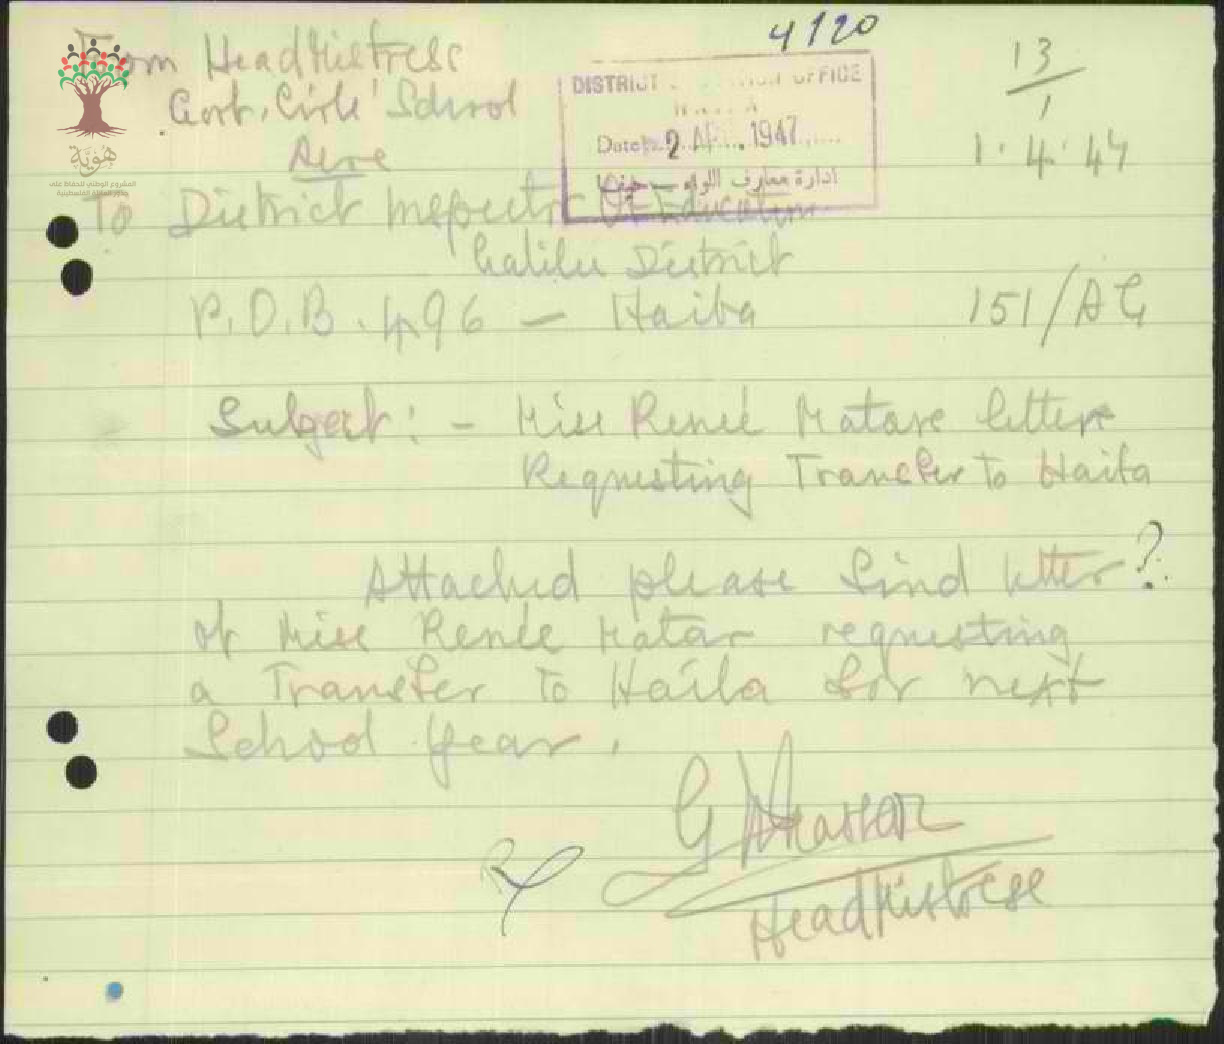 4120
From HeadMistress
Govt. Girls' School
Acre
13/1
1.4.47
DISTRICT EDUCATION OFFICE
HAIFA
Date 2 AP. 1947
ادارة معارف اللواء - حيفا
هُويَّة
المشروع الوطني للحفاظ على
To District Inspector Of Education
Galilee District
P.O.B. 496 — Haifa
151/AG
Subject: - Miss Renée Matars letter
Requesting Transfer to Haifa
Attached please find letter ?
of Miss Renée Matar requesting
a Transfer to Haifa for next
School year.
G
HeadMistress